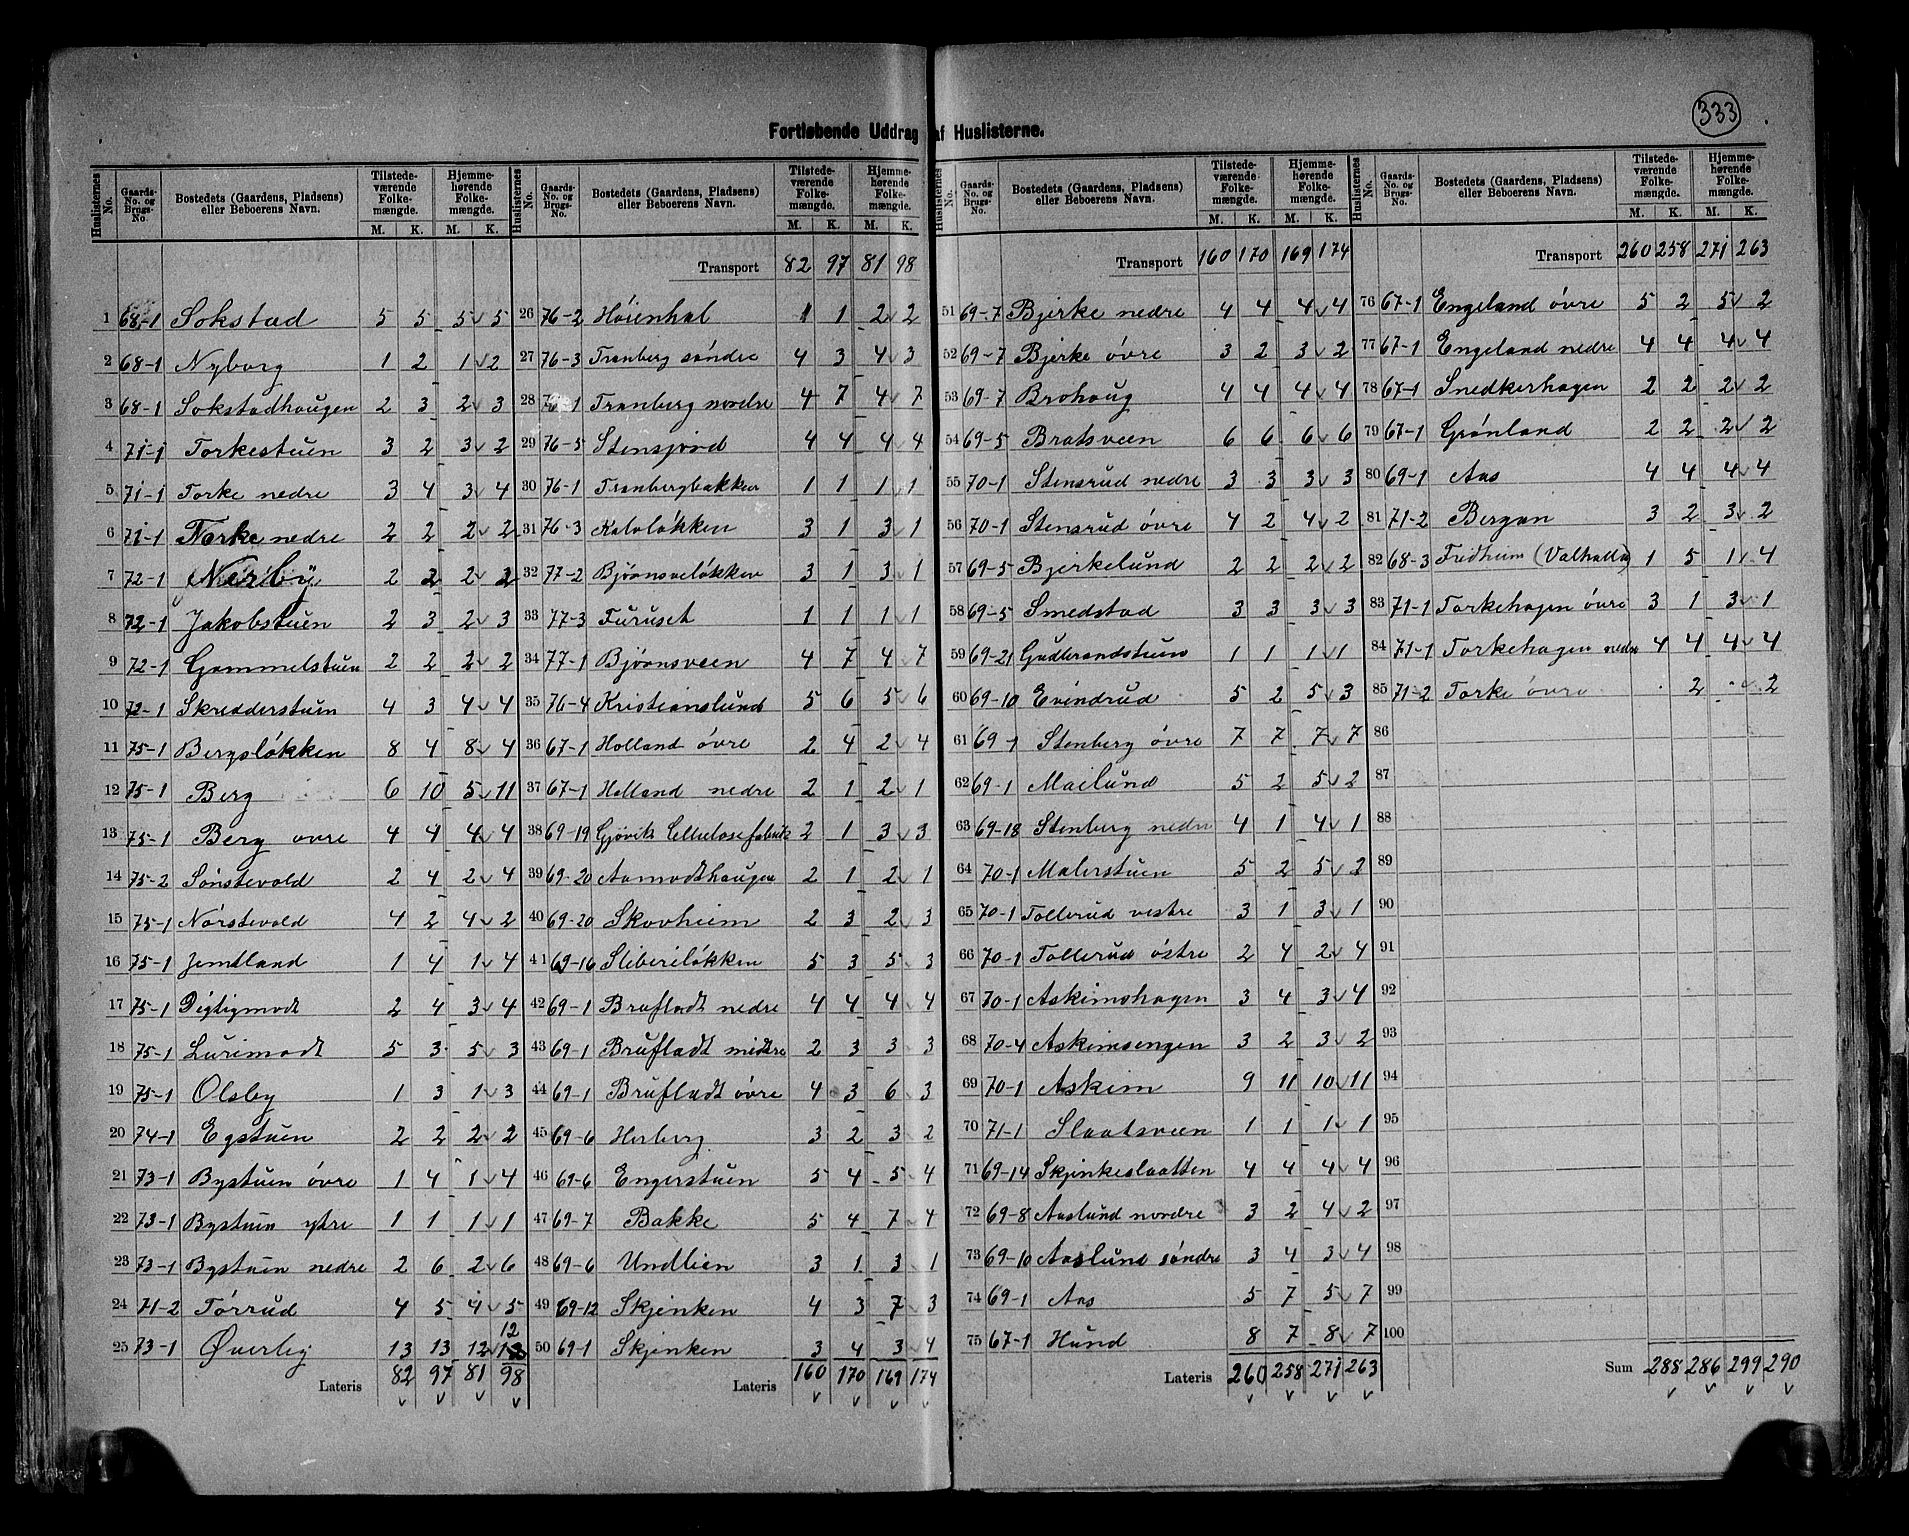 333
Fortløbende Uddrag af Huslisterne.
Huslisternes No. Gaards-No. og Brugs-No. Bostedets (Gaardens, Pladsens) eller Beboerens Navn. Tilstedeværende Folkemængde. M. K. Hjemmehørende Folkemængde. M. K.
1 68-1 Sokstad 5 5 5 5
2 68-1 Nyborg 1 2 1 2
3 68-1 Sokstadhaugen 2 3 2 3
4 71-1 Torkestuen 3 2 3 2
5 71-1 Torke nedre 3 4 3 4
6 71-1 Torke nedre 2 2 2 2
7 72-1 Nerby 2 2 2 2
8 72-1 Jakobstuen 2 3 2 3
9 72-1 Gammelstuen 2 2 2 2
10 72-1 Skredderstuen 4 3 4 4
11 75-1 Bergsløkken 8 4 8 4
12 75-1 Berg 6 10 5 11
13 75-1 Berg øvre 4 4 4 4
14 75-2 Sønstevold 2 4 2 4
15 75-1 Nørstevold 4 2 4 2
16 75-1 Jemtland 1 4 1 4
17 75-1 Digtigmodt 2 4 3 4
18 75-1 Lurimodt 5 3 5 3
19 75-1 Olsby 1 3 1 3
20 74-1 Egstuen 2 2 2 2
21 73-1 Bystuen øvre 1 4 1 4
22 73-1 Bystuen ytre 1 1 1 1
23 73-1 Bystuen nedre 2 6 2 6
24 71-2 Tørrud 4 5 4 5
25 73-1 Øverby 13 13 12 12
Lateris 82 97 81 98
Huslisternes No. Gaards-No. og Brugs-No. Bostedets (Gaardens, Pladsens) eller Beboerens Navn. Tilstedeværende Folkemængde. M. K. Hjemmehørende Folkemængde. M. K.
Transport 82 97 81 98
26 76-2 Høienhal 1 1 2 2
27 76-3 Tranberg søndre 4 3 4 3
28 76-1 Tranberg nordre 4 7 4 7
29 76-5 Stensjord 4 4 4 4
30 76-1 Tranbergbakken 1 1 1 1
31 76-3 Kalvløkken 3 1 3 1
32 77-2 Bjørnsveløkken 3 1 3 1
33 77-3 Furuset 1 1 1 1
34 77-1 Bjørnsveen 4 7 4 7
35 76-4 Kristianslund 5 6 5 6
36 67-1 Holland øvre 2 4 2 4
37 67-1 Holland nedre 2 1 2 1
38 69-19 Gjøvik Cellulosefabrik 2 1 3 3
39 69-20 Aamodthaugen 2 1 2 1
40 69-20 Skovheim 2 3 2 3
41 69-16 Sliberiløkken 5 3 5 3
42 69-1 Brufladt nedre 4 4 4 4
43 69-1 Brufladt midtre 2 3 3 3
44 69-1 Brufladt øvre 4 3 6 3
45 69-6 Herberg 3 2 3 2
46 69-6 Engerstuen 5 4 5 4
47 69-7 Bakke 5 4 7 4
48 69-6 Undlien 3 1 3 1
49 69-12 Skjenken 4 3 7 3
50 69-1 Skjenken 3 4 3 4
Lateris 160 170 169 174
Huslisternes No. Gaards-No. og Brugs-No. Bostedets (Gaardens, Pladsens) eller Beboerens Navn. Tilstedeværende Folkemængde. M. K. Hjemmehørende Folkemængde. M. K.
Transport 160 170 169 174
51 69-7 Bjerke nedre 4 4 4 4
52 69-7 Bjerke øvre 3 2 3 2
53 69-7 Brohaug 4 4 4 4
54 69-5 Bratsveen 6 6 6 6
55 70-1 Stensrud nedre 3 3 3 3
56 70-1 Stensrud øvre 4 2 4 2
57 69-5 Bjerkelund 2 2 2 2
58 69-5 Smedstad 3 3 3 3
59 69-21 Gudbrandstuen 1 1 1 1
60 69-10 Evindrud 5 2 5 3
61 69-1 Stenberg øvre 7 7 7 7
62 69-1 Mailund 5 2 5 2
63 69-18 Stenberg nedre 4 1 4 1
64 70-1 Malerstuen 5 2 5 2
65 70-1 Tollerud vestre 3 1 3 1
66 70-1 Tollerud østre 2 4 2 4
67 70-1 Askimshagen 3 4 3 4
68 70-4 Askimsengen 3 2 3 2
69 70-1 Askim 9 11 10 11
70 71-1 Slaatsveen 1 1 1 1
71 69-14 Skjenkeslaatten 4 4 4 4
72 69-8 Aaslund nordre 3 2 4 2
73 69-10 Aaslund søndre 3 4 3 4
74 69-1 Aas 5 7 5 7
75 67-1 Hund 8 7 8 7
Lateris 260 258 271 263
Huslisternes No. Gaards-No. og Brugs-No. Bostedets (Gaardens, Pladsens) eller Beboerens Navn. Tilstedeværende Folkemængde. M. K. Hjemmehørende Folkemængde. M. K.
Transport 260 258 271 263
76 67-1 Engeland øvre 5 2 5 2
77 67-1 Engeland nedre 4 4 4 4
78 67-1 Snedkerhagen 2 2 2 2
79 67-1 Grønland 2 2 2 2
80 69-1 Aas 4 4 4 4
81 71-2 Bergan 3 2 3 2
82 68-3 Fridheim (Valhalla) 1 5 1 4
83 71-1 Torkehagen øvre 3 1 3 1
84 71-1 Torkehagen nedre 4 4 4 4
85 71-2 Torke øvre . 2 . 2
86
87
88
89
90
91
92
93
94
95
96
97
98
99
100
Sum 288 286 299 290